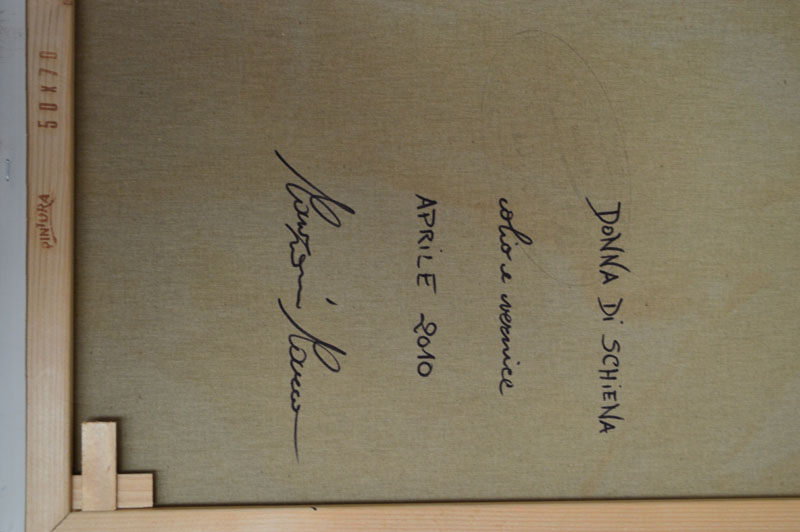 DONNA Di SCHiENA
olio e vernice
APRiLE 2010
Manzoni Marco
50X70
PINTURA